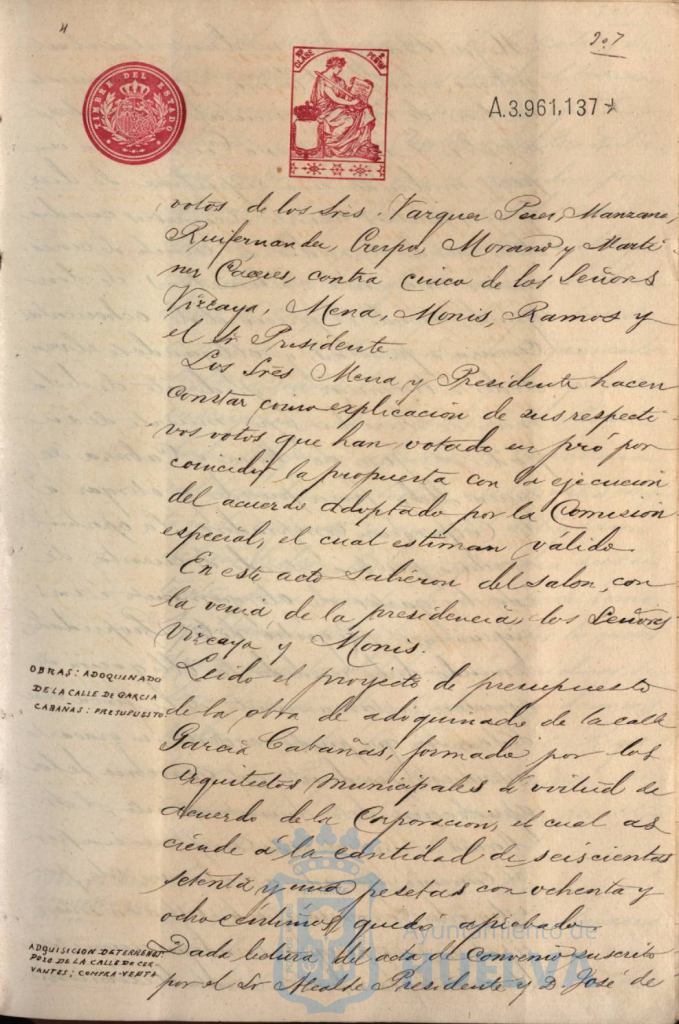 4
207
TIMBRE DEL ESTADO
CLASE
PESETA
A.3.961,137
votos de los Sres. Vazquez Perez, Manzano,
Ruifernandez, Crespo, Morano y Marti
nez Cáceres, contra cinco de los Señores
Vizcaya, Mena, Monis, Ramos y
el Sr Presidente
Los Sres Mena y Presidente hacen
constar como explicacion de sus respecti
vos votos que han votado en pró por
coincidir la propuesta con la ejecucion
del acuerdo adoptado por la Comision
especial, el cual estiman válido.
En este acto salieron del salon, con
la venia de la presidencia, los Señores
Vizcaya y Monis.
OBRAS: ADOQUINADO
DE LA CALLE DE GARCIA
CABAÑAS: PRESUPUESTO
Leido el proyecto de presupuesto
de la obra de adoquinado de la calle
García Cabañas, formado por los
Arquitectos municipales á virtud de
acuerdo de la Corporacion, el cual as
ciende á la cantidad de seiscientas
setenta y una pesetas con ochenta y
ocho centimos, quedó aprobado.
ADQUISICION DE TERRENOS:
POZO DE LA CALLE DE CER-
VANTES; COMPRA-VENTA
Dada lectura del acta de convenio suscrito
por el Sr Alcalde Presidente y D. José de
Ayuntamiento de
HUELVA